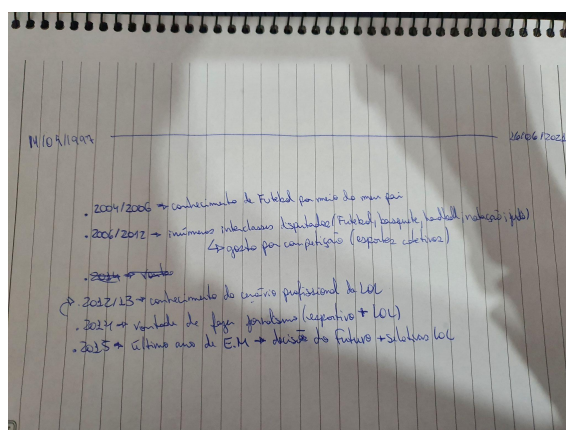 11/09/1997 26/06/2021
. 2004/2006 → conhecimento de Futebol por meio do meu pai
. 2006/2012 → inúmeros interclasses disputados (Futebol, basquete, handball, natação, judô)
↳ gosto por competição (esportes coletivos)
. 2014 →
2012/13 → conhecimento do cenário profissional do LOL
. 2014 → vontade de fazer jornalismo (esportivo + LOL)
. 2015 → último ano de E.M → decisão do Futuro + seletivas LOL